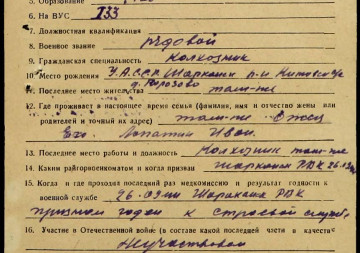 5. Образование
6. На ВУС 133
7. Должностная квалификация
8. Военное звание рядовой
9. Гражданская специальность колхозник
10. Место рождения УАССР Шарканск р-н
11. Последнее место жительства там-же
12. Где проживает в настоящее время семья (фамилия, имя и отчество жены или
родителей и точный адрес) там-же Отец
Иван
13. Последнее место работы и должность Колхозник там-же
14. Каким райгорвоенкоматом и когда призван Шаркански РВК
15. Когда и где проходил последний раз медкомиссию и результат годности к
военной службе Шаркански РВК
признан годен к строевой службе
16. Участие в Отечественной войне (в составе какой последней части в качестве
Неучаствовал